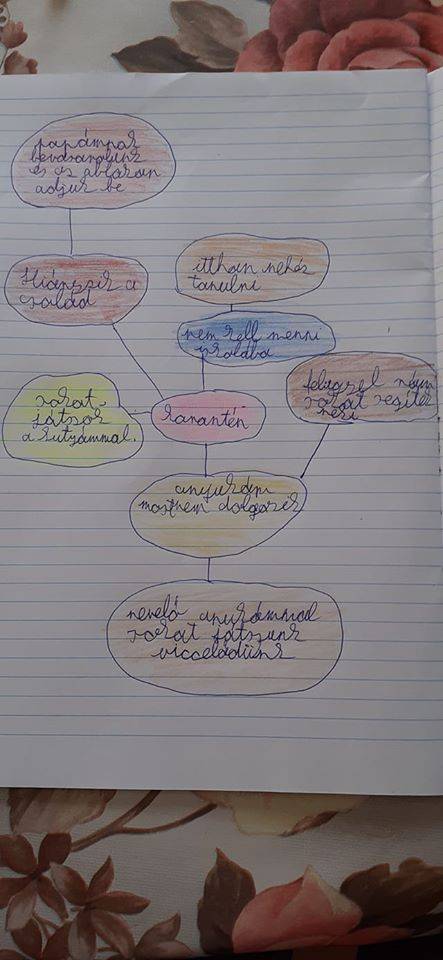 papámnak
bevásárolunk
és az ablakon
adjuk be
Hiányzik a
család
itthon nehéz
tanulni
nem kell menni
iskolába
sokat
játszok
a kutyámmal.
karantén
sokat segítek
neki
anyukám
most nem dolgozik
nevelő apukámmal
sokat játszunk
viccelődünk